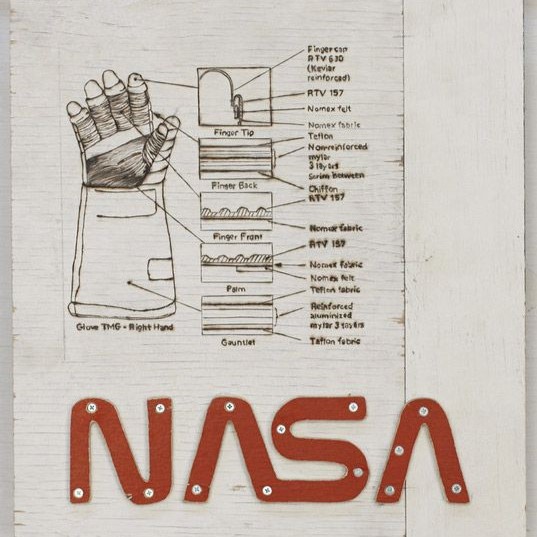 Finger cap
RTV 630
(Kevlar
reinforced)
RTV 157
Nomex felt
Nomex fabric
Finger Tip
Teflon
Non-reinforced
mylar
3 layers
Scrim between
Chiffon
Finger Back
RTV 157
Nomex fabric
Finger Front
RTV 157
Nomex fabric
Nomex felt
Palm
Teflon fabric
Reinforced
aluminized
mylar 3 layers
Teflon fabric
Gauntlet
Glove TMG - Right Hand
NASA